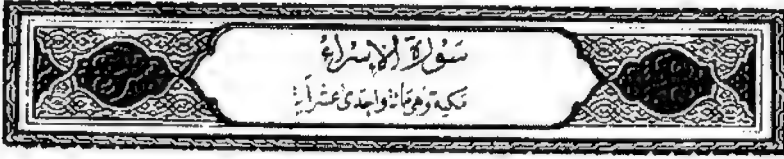 سُورَةُ الإِسْرَاءِ
مكية وهي مائة وإحدى عشر آية